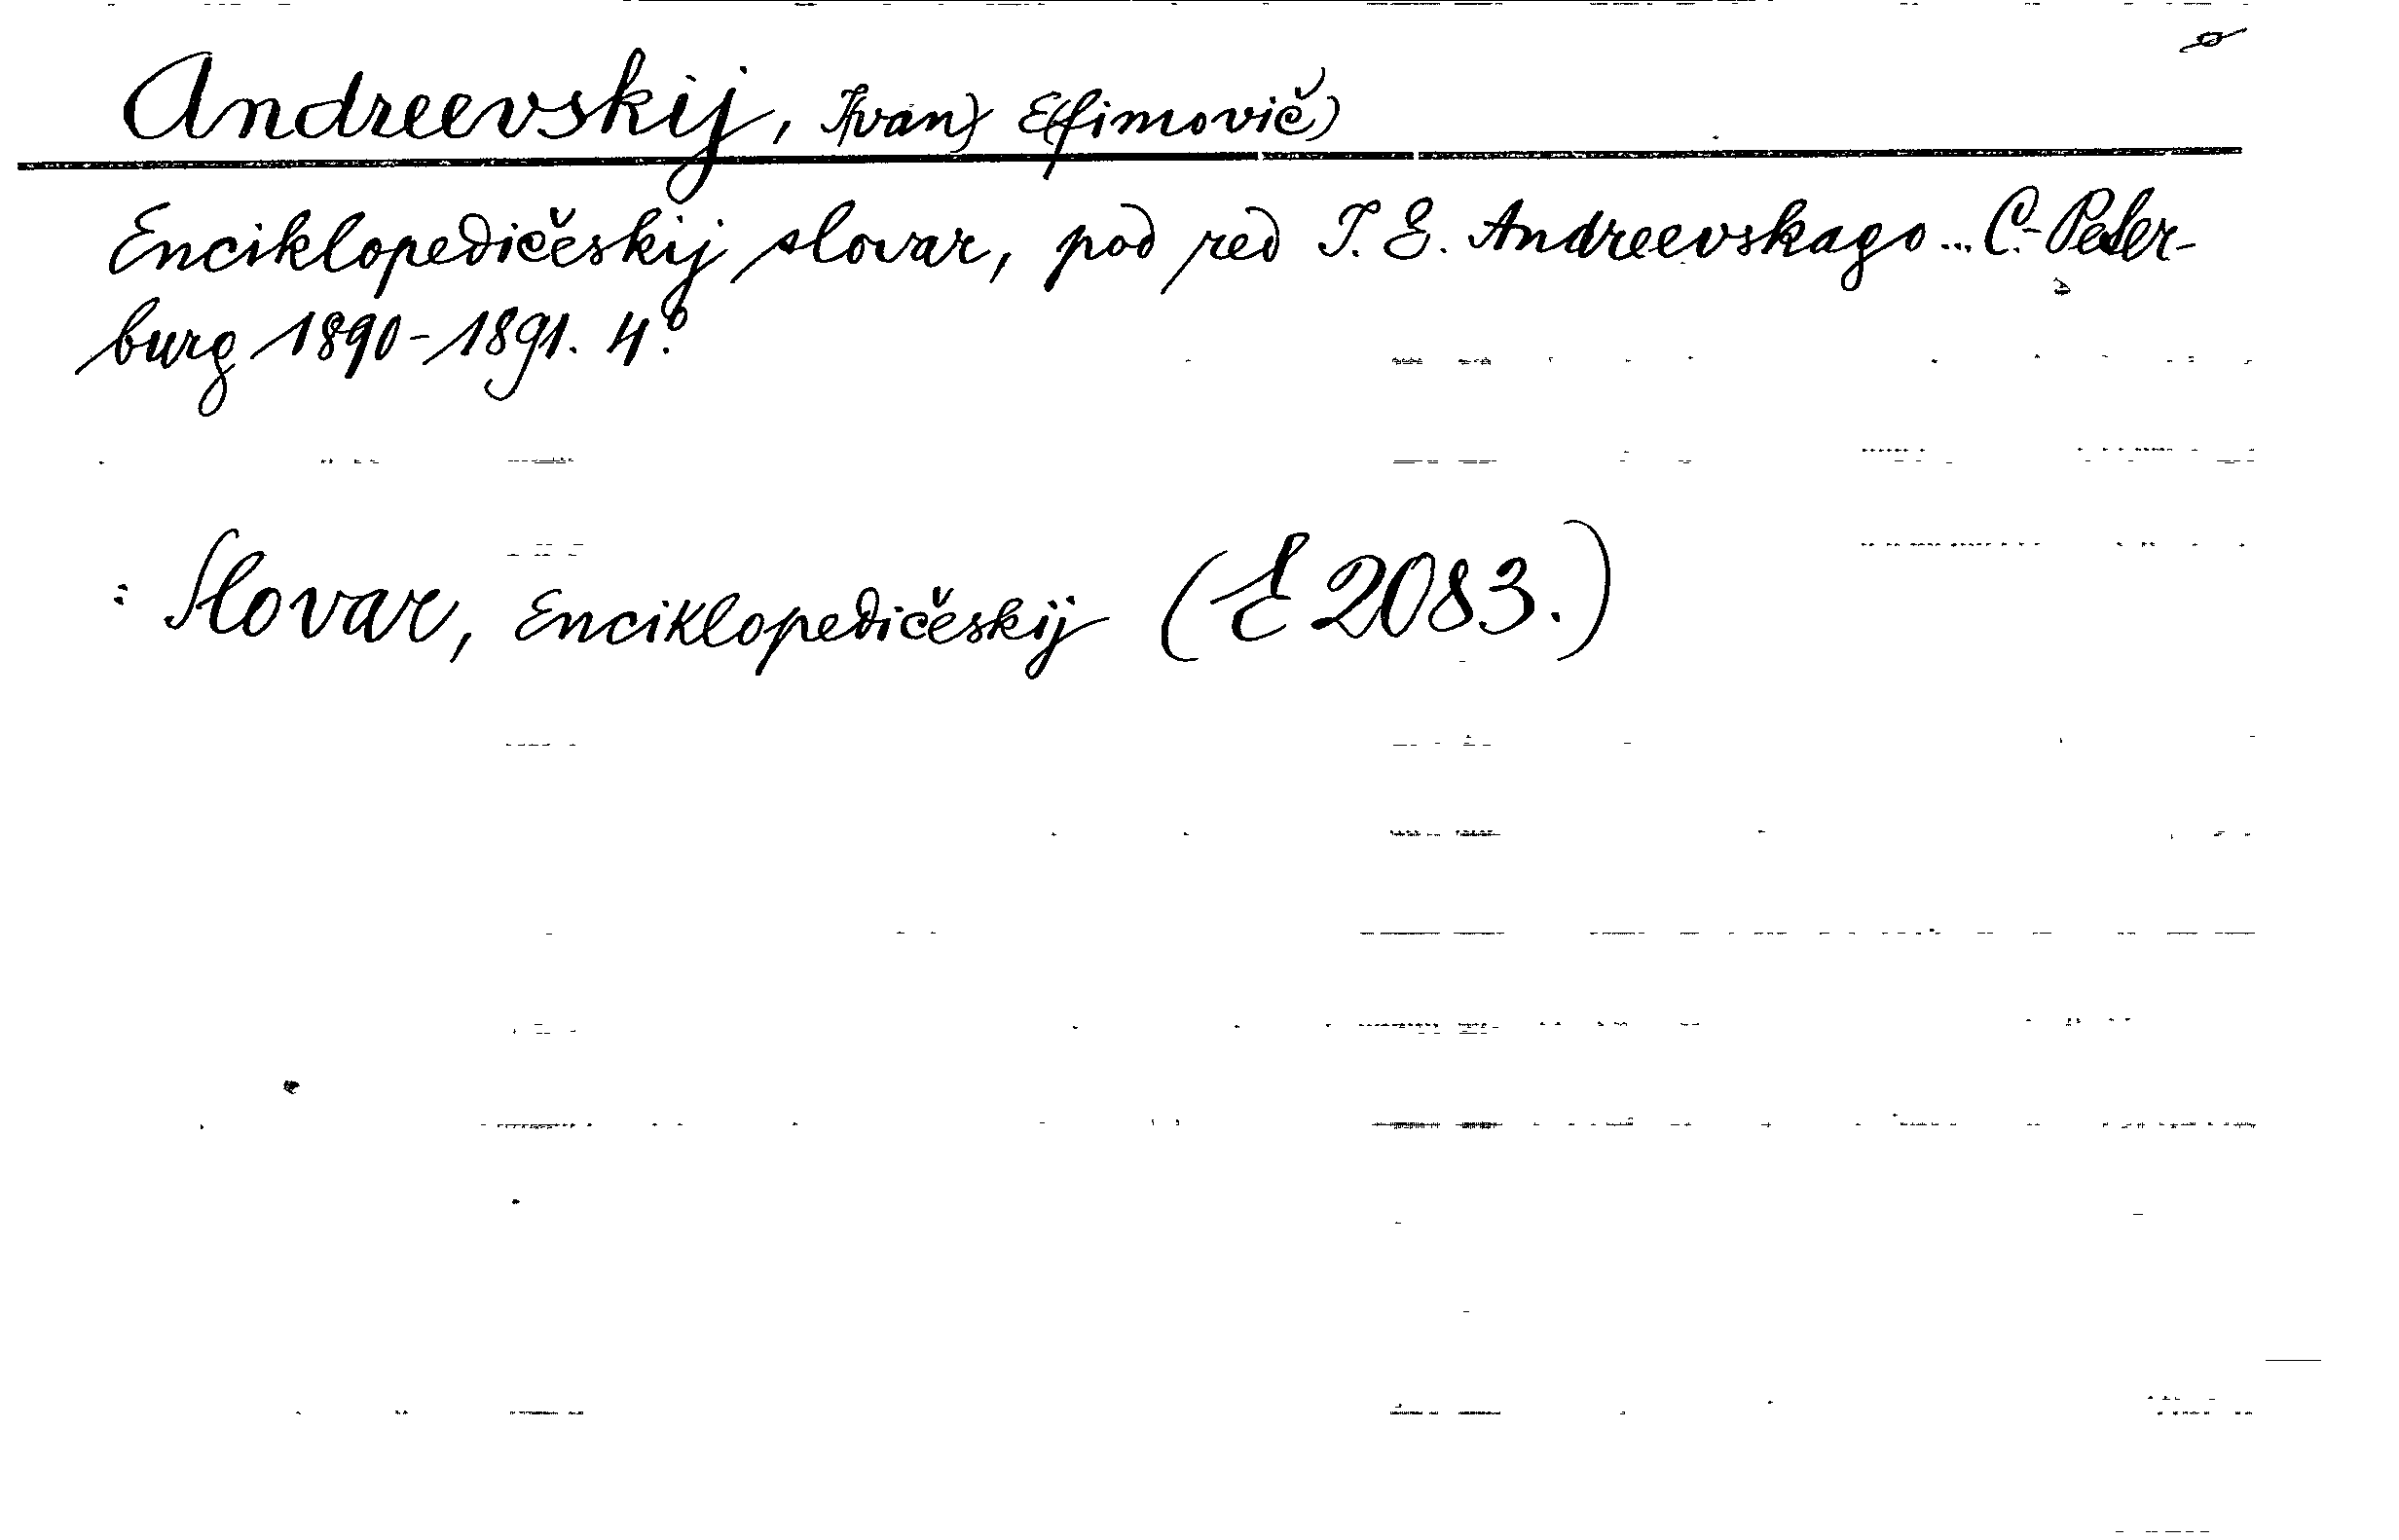 Andreevskij, I(van) E(fimovič)
Enciklopedičeskij slovar, pod red I. E. Andreevskago... C.-Peter-
burg 1890-1891. 4.°
: Slovar, Enciklopedičeskij (E 2083.)